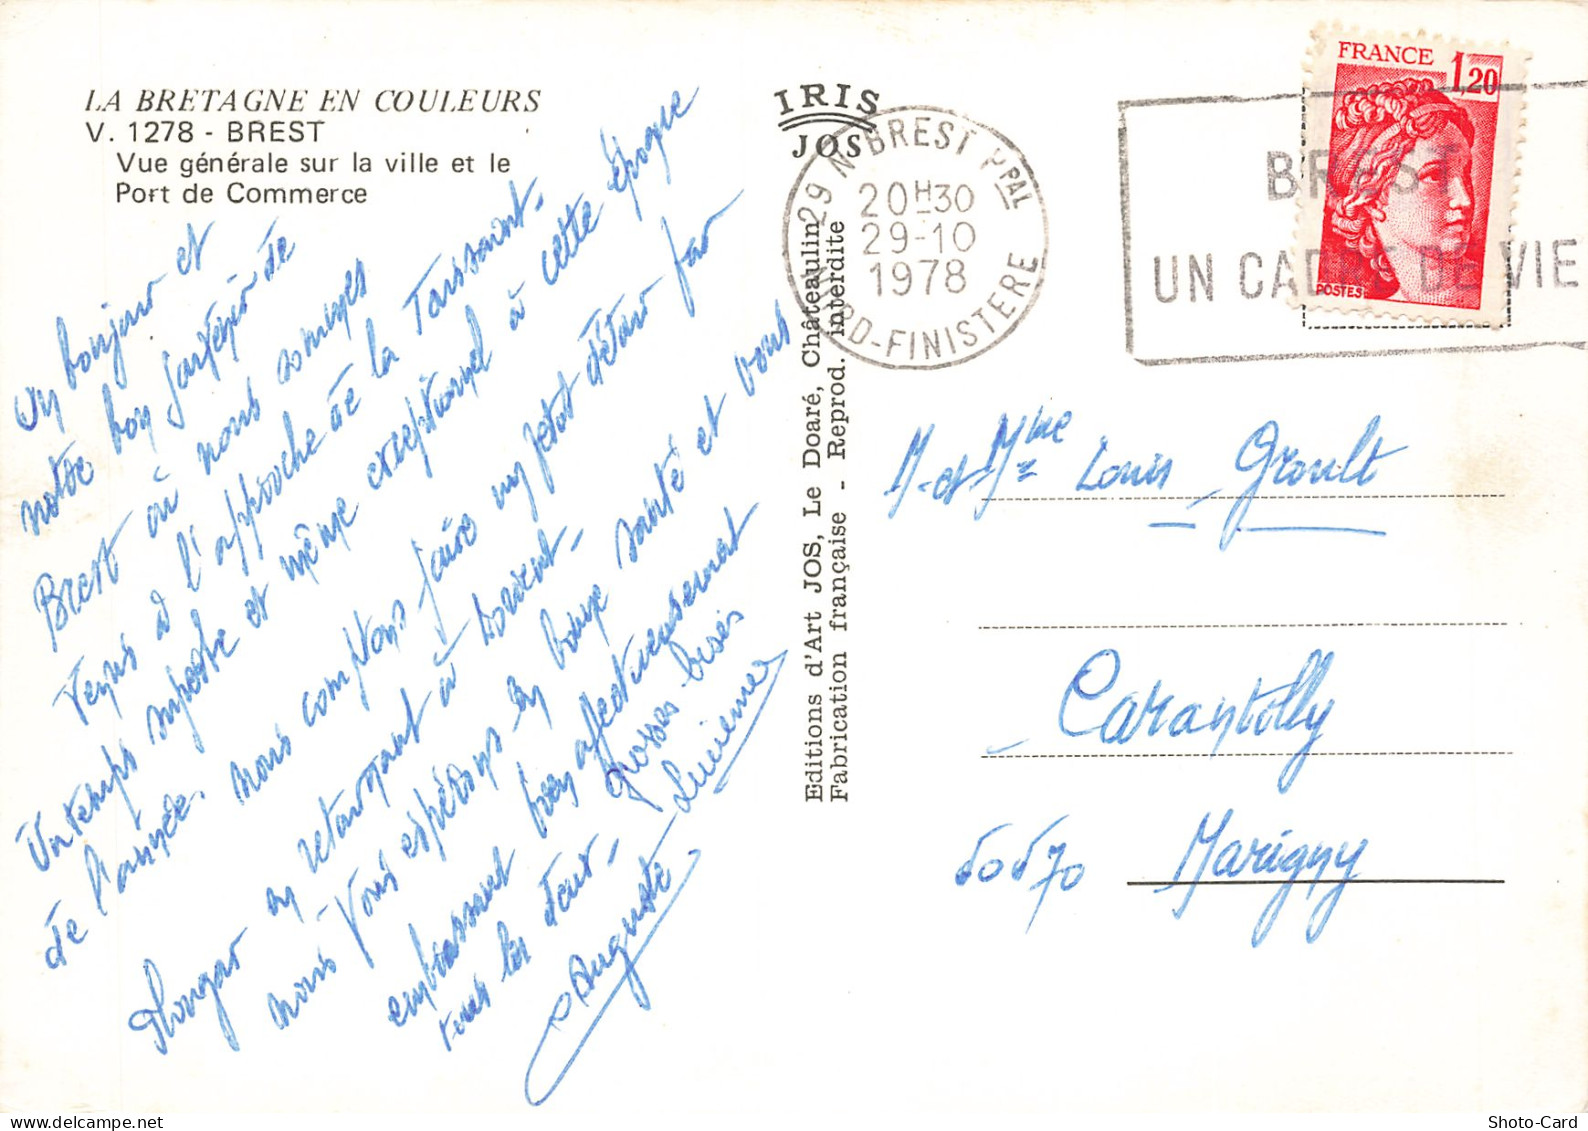 LA BRETAGNE EN COULEURS
V. 1278 - BREST
Vue générale sur la ville et le
Port de Commerce
Un bonjour et
notre bon souvenir de
Brest où nous sommes
venus à l'approche de la Toussaint.
Un temps superbe et même exceptionnel à cette époque
de l'année. Nous comptons faire un petit détour par
Plougar en retournant à Lorient.
Nous vous espérons en bonne santé et vous
embrassons bien affectueusement
tous les deux. grosses bises
Auguste Lucienne
IRIS
JOS
Editions d'Art JOS, Le Doaré, Châteaulin
Fabrication française - Reprod. interdite
29 N BREST PPAL
20H30
29-10
1978
NORD-FINISTERE
BREST
UN CADRE DE VIE
FRANCE 1,20
POSTES
M. et Mme Louis Groult
Carantilly
50570 Marigny
Shoto-Card